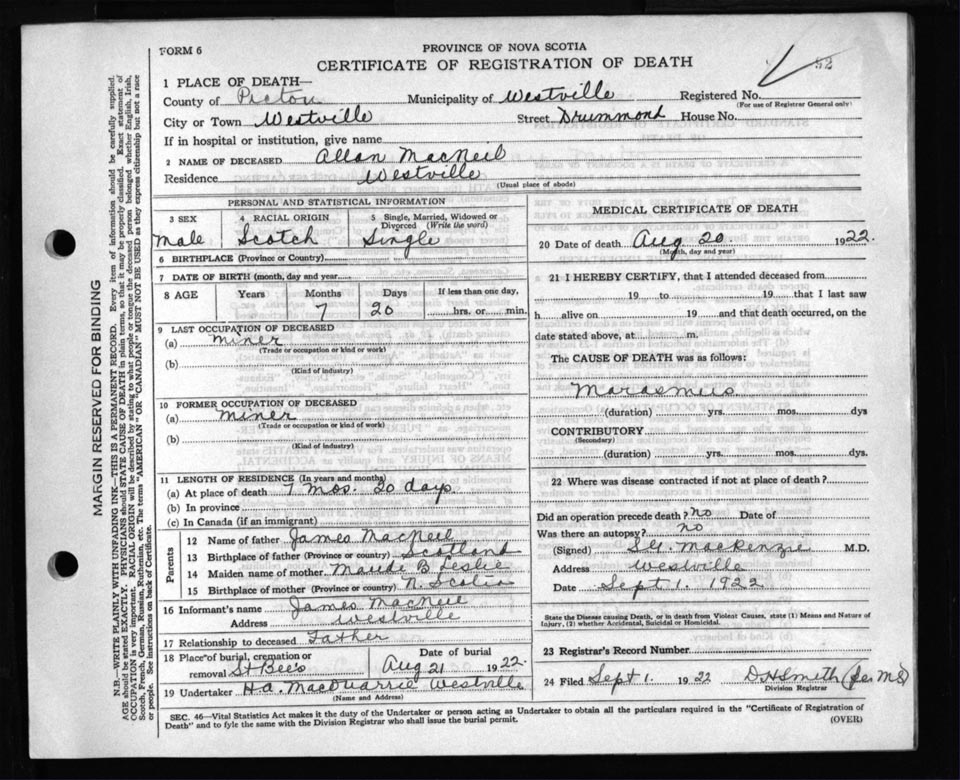 FORM 6
PROVINCE OF NOVA SCOTIA
CERTIFICATE OF REGISTRATION OF DEATH
52
1 PLACE OF DEATH—
County of Pictou Municipality of Westville Registered No.
(For use of Registrar General only)
City or Town Westville Street Drummond House No.
If in hospital or institution, give name
2 NAME OF DECEASED Allan MacNeil
Residence Westville
(Usual place of abode)
PERSONAL AND STATISTICAL INFORMATION
3 SEX 4 RACIAL ORIGIN 5 Single, Married, Widowed or Divorced (Write the word)
Male Scotch Single
6 BIRTHPLACE (Province or Country)
7 DATE OF BIRTH (month, day and year)
8 AGE Years Months Days If less than one day,
7 20 hrs. or min.
9 LAST OCCUPATION OF DECEASED
(a) Miner
(Trade or occupation or kind or work)
(b)
(Kind of industry)
10 FORMER OCCUPATION OF DECEASED
(a) Miner
(Trade or occupation or kind of work)
(b)
(Kind of industry)
11 LENGTH OF RESIDENCE (In years and months)
(a) At place of death 7 Mos. 20 days.
(b) In province
(c) In Canada (if an immigrant)
Parents
12 Name of father James MacNeil
13 Birthplace of father (Province or country) Scotland
14 Maiden name of mother Maude B Leslie
15 Birthplace of mother (Province or country) N. Scotia
16 Informant's name James MacNeil
Address Westville
17 Relationship to deceased Father
18 Place of burial, cremation or removal St Bee's
Date of burial
Aug 21 1922.
19 Undertaker H.A. MacQuarrie Westville
(Name and Address)
MEDICAL CERTIFICATE OF DEATH
20 Date of death Aug 20. 1922.
(Month, day and year)
21 I HEREBY CERTIFY, that I attended deceased from
19 to 19 that I last saw
h alive on 19 and that death occurred, on
date stated above, at m.
The CAUSE OF DEATH was as follows:
Marasmus
(duration) yrs. mos. dys
CONTRIBUTORY
(Secondary)
(duration) yrs. mos. dys.
22 Where was disease contracted if not at place of death?
Did an operation precede death? No Date of
Was there an autopsy? No
(Signed) MacKenzie M.D.
Address Westville
Date Sept 1. 1922
State the Disease causing Death, or in death from Violent Causes, state (1) Means and Nature of
Injury, (2) whether Accidental, Suicidal or Homicidal.
23 Registrar's Record Number
24 Filed Sept 1. 1922 D H Smith
Division Registrar
SEC. 46—Vital Statistics Act makes it the duty of the Undertaker or person acting as Undertaker to obtain all the particulars required in the "Certificate of Registration of
Death" and to fyle the same with the Division Registrar who shall issue the burial permit.
(OVER)
MARGIN RESERVED FOR BINDING
N.B.—WRITE PLAINLY WITH UNFADING INK—THIS IS A PERMANENT RECORD. Every item of information should be carefully supplied.
AGE should be stated EXACTLY. PHYSICIANS should STATE CAUSE OF DEATH in plain terms, so that it may be properly classified. Exact statement of
OCCUPATION is very important. RACIAL ORIGIN will be described by stating to what people or tongue the deceased person belonged whether English, Irish,
Scotch, French, German, Russian, Ruthenian, etc. The terms "AMERICAN" OR "CANADIAN" MUST NOT BE USED as they express citizenship but not a race
or people. See instructions on back of Certificate.